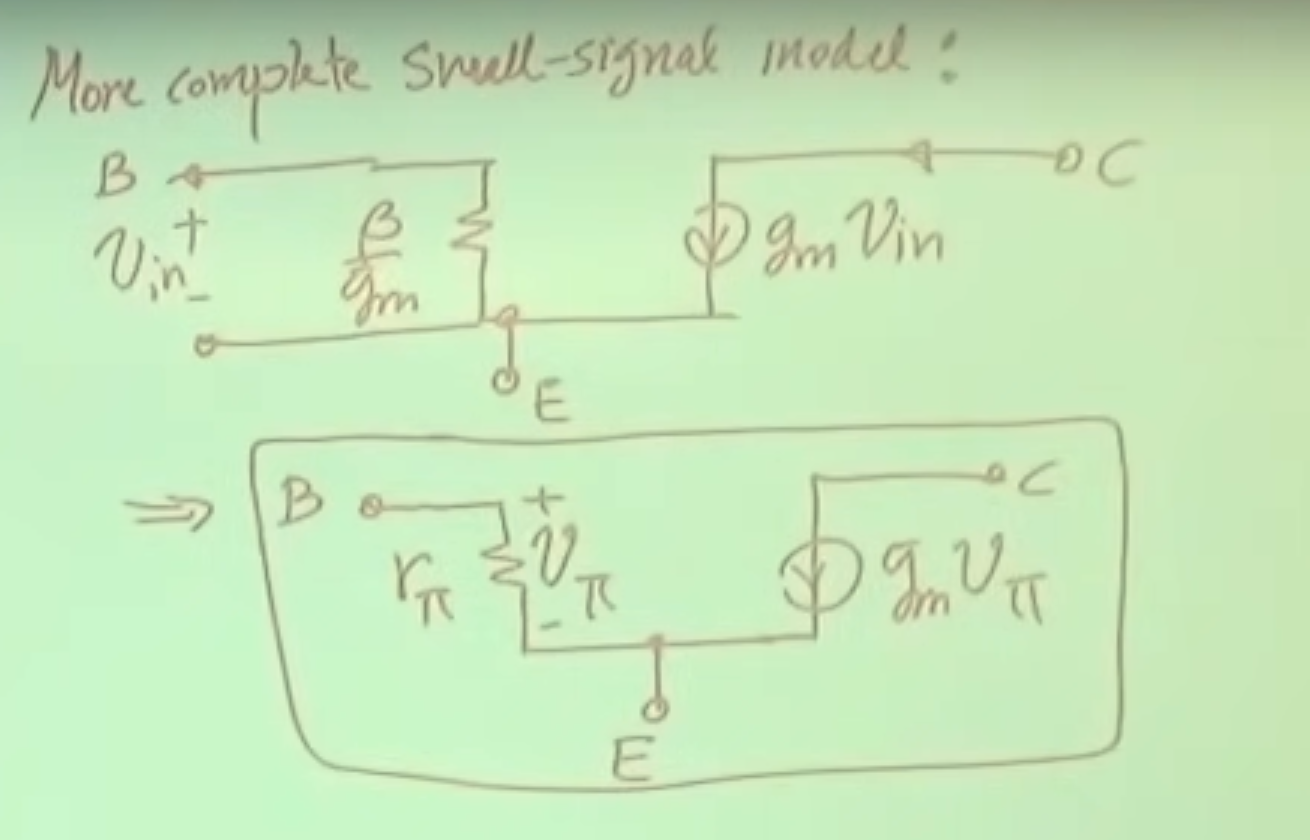 More complete Small-signal model :
B
C
+
Vin
-
β/gm
gm Vin
E
⇒
B
C
+
rπ
Vπ
-
gm Vπ
E